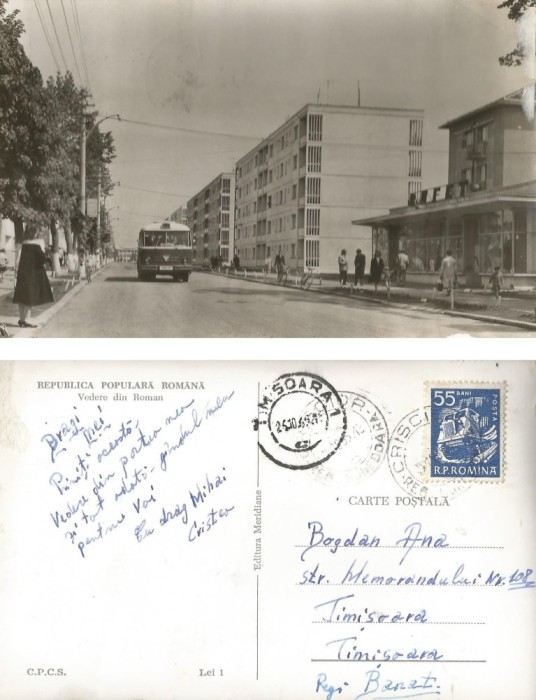 BUFET
REPUBLICA POPULARĂ ROMÂNĂ
Vedere din Roman
Dragi mei
Primiți această
vedere din partea mea
și tot odată gândul meu
pentru voi
Cu drag Mihai
Cristea
Editura Meridiane
C.P.C.S.
Lei 1
TIMISOARA 1
CRISC
55 BANI
POSTA
R.P.ROMINA
CARTE POȘTALĂ
Bogdan Ana
str. Memorandului Nr. 108
Timișoara
Timișoara
Regi Banat.